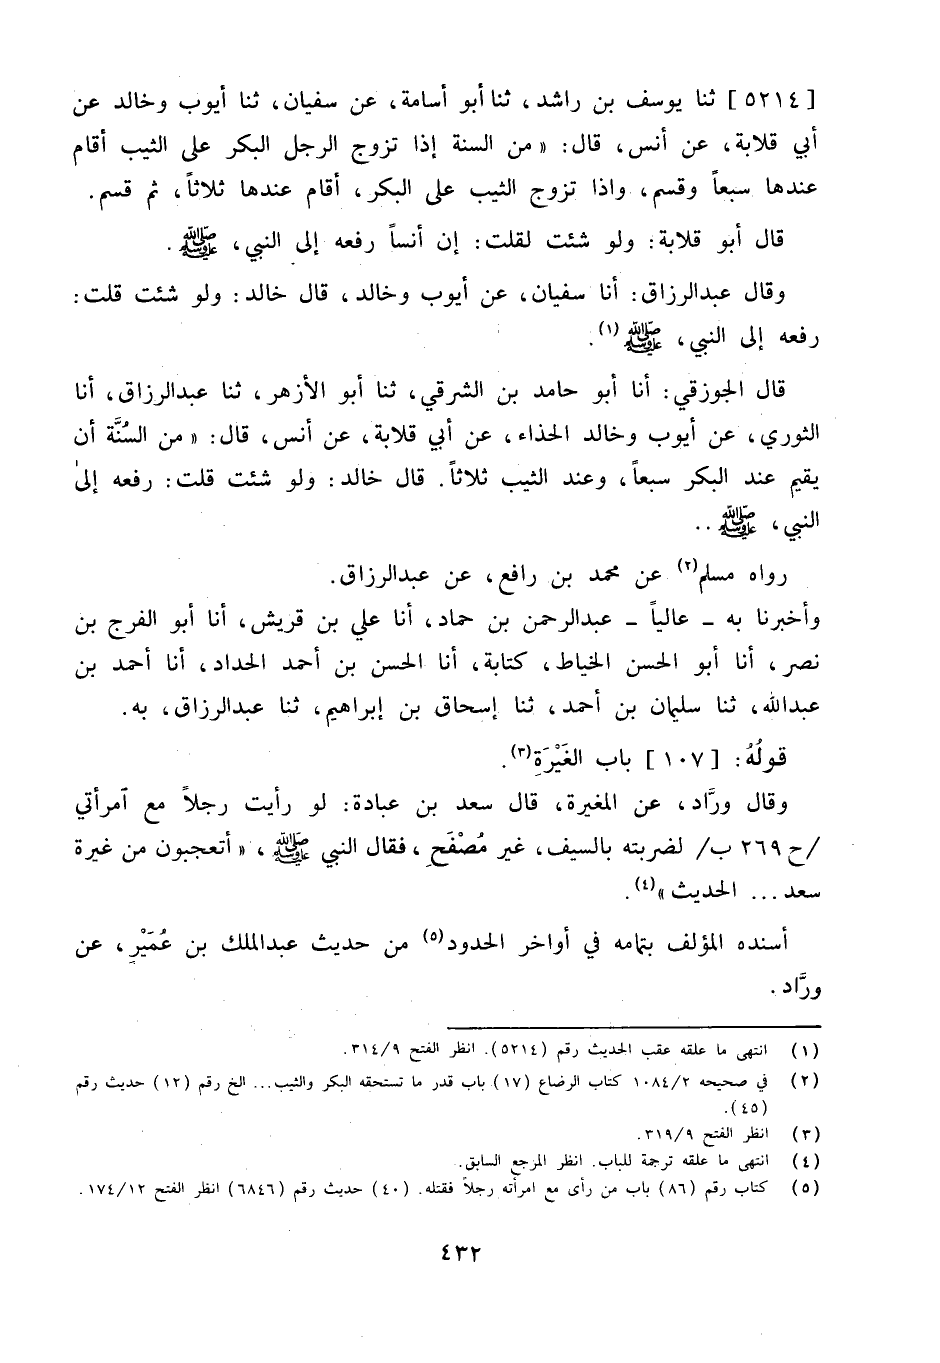 [ ٥٢١٤ ] ثنا يوسف بن راشد، ثنا أبو أسامة، عن سفيان، ثنا أيوب وخالد عن
أبي قلابة، عن أنس، قال: « من السنة إذا تزوج الرجل البكر على الثيب أقام
عندها سبعاً وقسم، واذا تزوج الثيب على البكر، أقام عندها ثلاثاً، ثم قسم.
قال أبو قلابة: ولو شئت لقلت: إن أنساً رفعه إلى النبي، ﷺ .
وقال عبدالرزاق: أنا سفيان، عن أيوب وخالد، قال خالد: ولو شئت قلت:
رفعه إلى النبي، ﷺ(١).
قال الجوزقي: أنا أبو حامد بن الشرقي، ثنا أبو الأزهر، ثنا عبدالرزاق، أنا
الثوري، عن أيوب وخالد الحذاء، عن أبي قلابة، عن أنس، قال: « من السُنَّة أن
يقيم عند البكر سبعاً، وعند الثيب ثلاثاً. قال خالد: ولو شئت قلت: رفعه إلى
النبي، ﷺ ..
رواه مسلم(٢) عن محمد بن رافع، عن عبدالرزاق.
وأخبرنا به – عالياً – عبدالرحمن بن حماد، أنا علي بن قريش، أنا أبو الفرج بن
نصر، أنا أبو الحسن الخياط، كتابة، أنا الحسن بن أحمد الحداد، أنا أحمد بن
عبدالله، ثنا سليمان بن أحمد، ثنا إسحاق بن إبراهيم، ثنا عبدالرزاق، به.
قولُهُ: [ ١٠٧ ] باب الغَيْرَةِ(٣).
وقال ورَّاد، عن المغيرة، قال سعد بن عبادة: لو رأيت رجلاً مع آمرأتي
/ح ٢٦٩ ب/ لضربته بالسيف، غير مُصْفَحٍ، فقال النبي ﷺ ، « أتعجبون من غيرة
سعد ... الحديث »(٤).
أسنده المؤلف بتمامه في أواخر الحدود(٥) من حديث عبدالملك بن عُمَيْرٍ، عن
ورَّاد.
(١) انتهى ما علقه عقب الحديث رقم (٥٢١٤). انظر الفتح ٣١٤/٩.
(٢) في صحيحه ١٠٨٤/٢ كتاب الرضاع (١٧) باب قدر ما تستحقه البكر والثيب... الخ رقم (١٢) حديث رقم
(٤٥).
(٣) انظر الفتح ٣١٩/٩.
(٤) انتهى ما علقه ترجمة للباب. انظر المرجع السابق.
(٥) كتاب رقم (٨٦) باب من رأى مع امرأته رجلاً فقتله. (٤٠) حديث رقم (٦٨٤٦) انظر الفتح ١٧٤/١٢.
٤٣٢